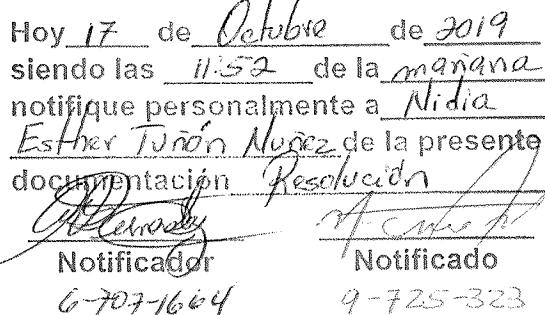 Hoy 17 de Octubre de 2019
siendo las 11:52 de la mañana
notifique personalmente a Nidia
Esther Tuñón Nuñez de la presente
documentación Resolución
Notificador Notificado
6-707-1664 9-725-323